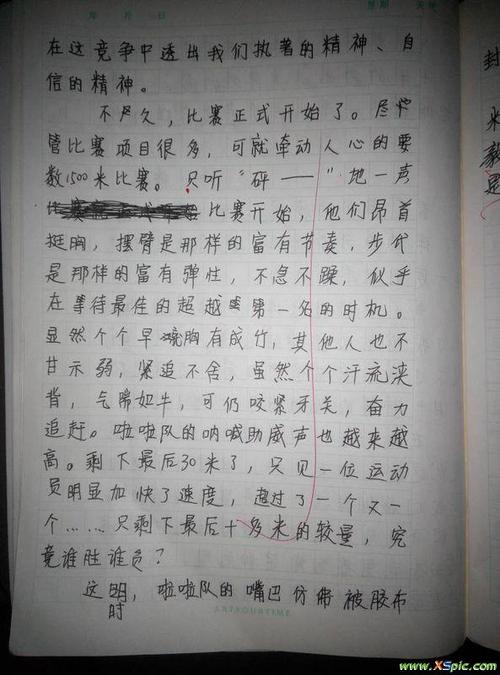 年 月 日
星期 天气
在这竞争中透出我们执著的精神、自
信的精神。
不久，比赛正式开始了。尽
管比赛项目很多，可就牵动人心的要
数1500米比赛。只听“砰——”地一声
比赛开始，他们昂首
挺胸，摆臂是那样的富有节奏，步伐
是那样的富有弹性，不急不躁，似乎
在等待最佳的超越第一名的时机。
显然个个早胸有成竹，其他人也不
甘示弱，紧追不舍，虽然个个汗流浃
背，气喘如牛，可仍咬紧牙关，奋力
追赶。啦啦队的呐喊助威声也越来越
高。剩下最后30米了，只见一位运动
员明显加快了速度，超过了一个又一
个……只剩下最后十多米的较量，究
竟谁胜谁负？
这时，啦啦队的嘴巴仿佛被胶布
ARTFOURTIME
封
米
www.XSpic.com